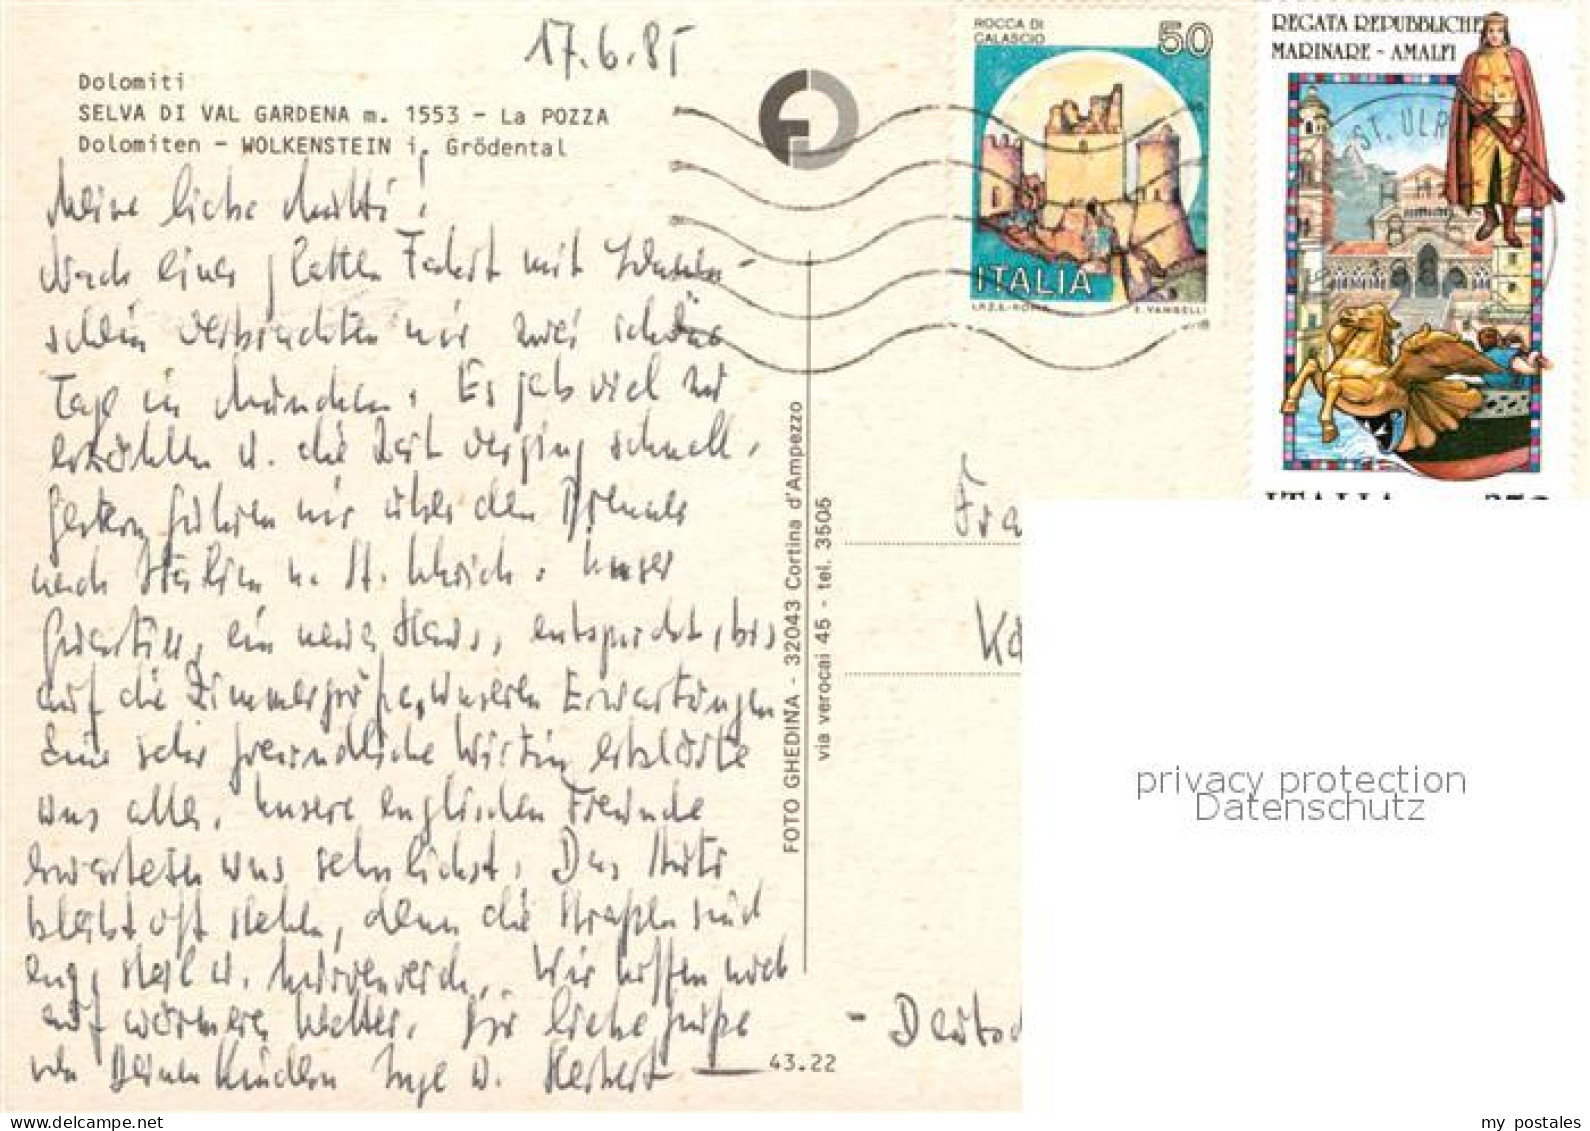 17.6.85
Dolomiti
SELVA DI VAL GARDENA m. 1553 - La POZZA
Dolomiten - WOLKENSTEIN i. Grödental
Meine liebe Mutti!
Nach einer glatten Fahrt mit Sonnen-
schein verbrachten wir zwei schöne
Tage in München. Es gab viel zu
erzählen u. die Zeit verging schnell.
Gestern fuhren wir über den Brenner
nach Italien n. St. Ulrich. Unser
Quartier, ein neues Haus, entspricht, bis
auf die Zimmergröße, unseren Erwartungen
Eine sehr freundliche Wirtin erklärte
uns alles. Unsere englischen Freunde
erwarteten uns sehnlichst. Das Auto
bleibt oft stehen, denn die Straßen sind
eng, steil u. kurvenreich. Wir hoffen noch
auf wärmeres Wetter. Für liebe Grüße
von Deinen Kindern Inge u. Herbert
43.22
FOTO GHEDINA - 32043 Cortina d'Ampezzo
via verocai 45 - tel. 3505
ROCCA DI
CALASCIO
50
ITALIA
I.P.Z.S.-ROMA E. VANGELLI
REGATA REPUBBLICHE
MARINARE - AMALFI
ST. ULR
ITALIA
Fra
Kö
- Deutsc
privacy protection
Datenschutz
my postales